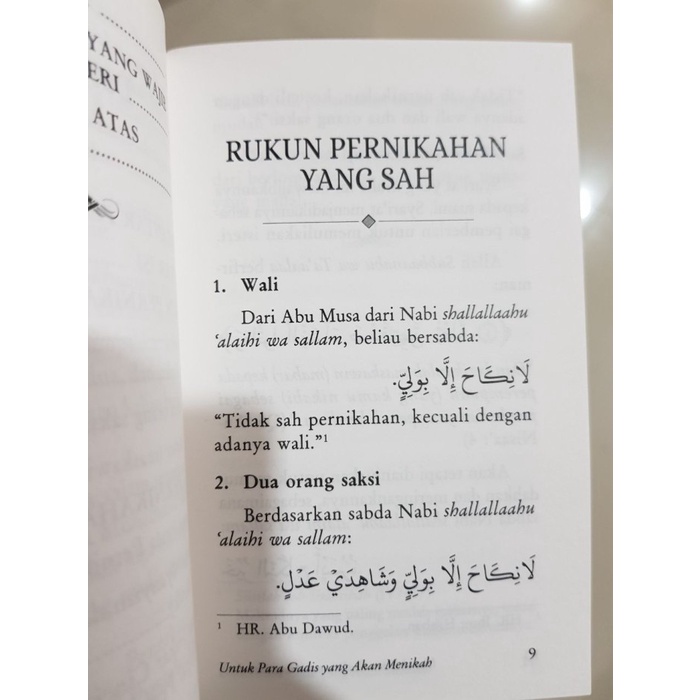 YANG WAJIB
ERI
ATAS
RUKUN PERNIKAHAN
YANG SAH
1. Wali
Dari Abu Musa dari Nabi shallallaahu
‘alaihi wa sallam, beliau bersabda:
لَا نِكَاحَ إِلَّا بِوَلِيٍّ.
“Tidak sah pernikahan, kecuali dengan
adanya wali.”¹
2. Dua orang saksi
Berdasarkan sabda Nabi shallallaahu
‘alaihi wa sallam:
لَا نِكَاحَ إِلَّا بِوَلِيٍّ وَشَاهِدَيْ عَدْلٍ.
¹ HR. Abu Dawud.
Untuk Para Gadis yang Akan Menikah
9